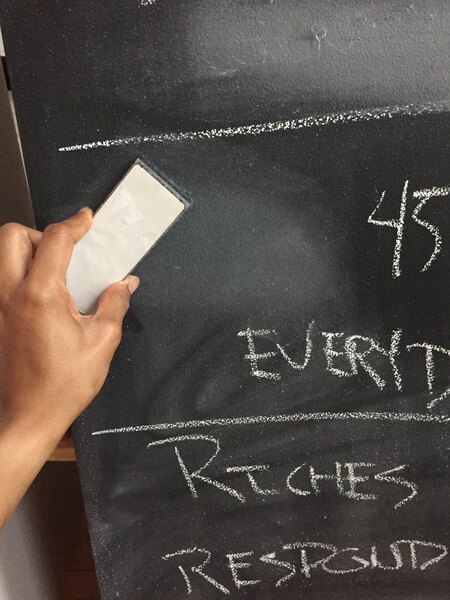 45
EVERYD
RICHES
RESPOUD